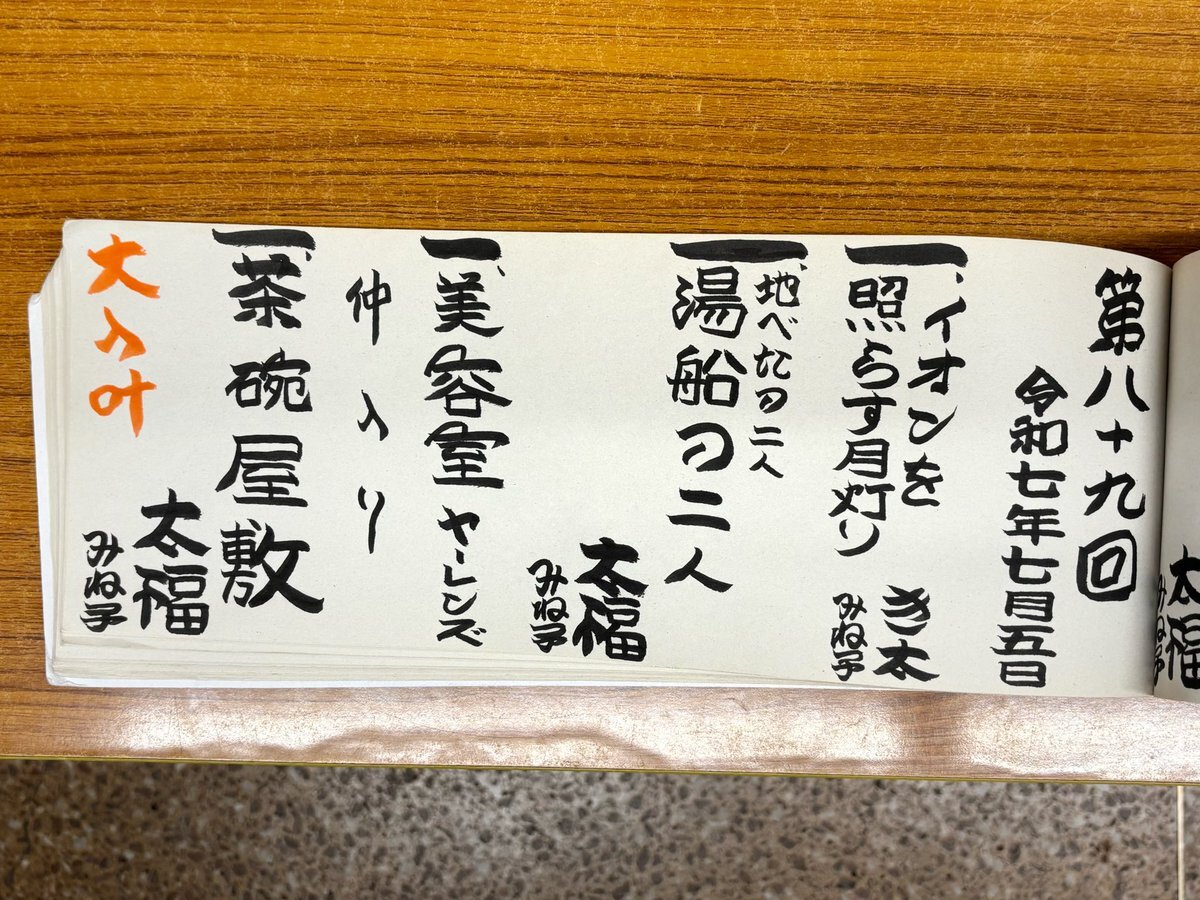 第八十九回
令和七年七月五日
一、イオンを
照らす月灯り
き太
みね子
一、地べたの二人
湯船の二人
太福
みね子
一、美容室ヤーレンズ
仲入り
一、茶碗屋敷
太福
みね子
大入叶
太福
みね子